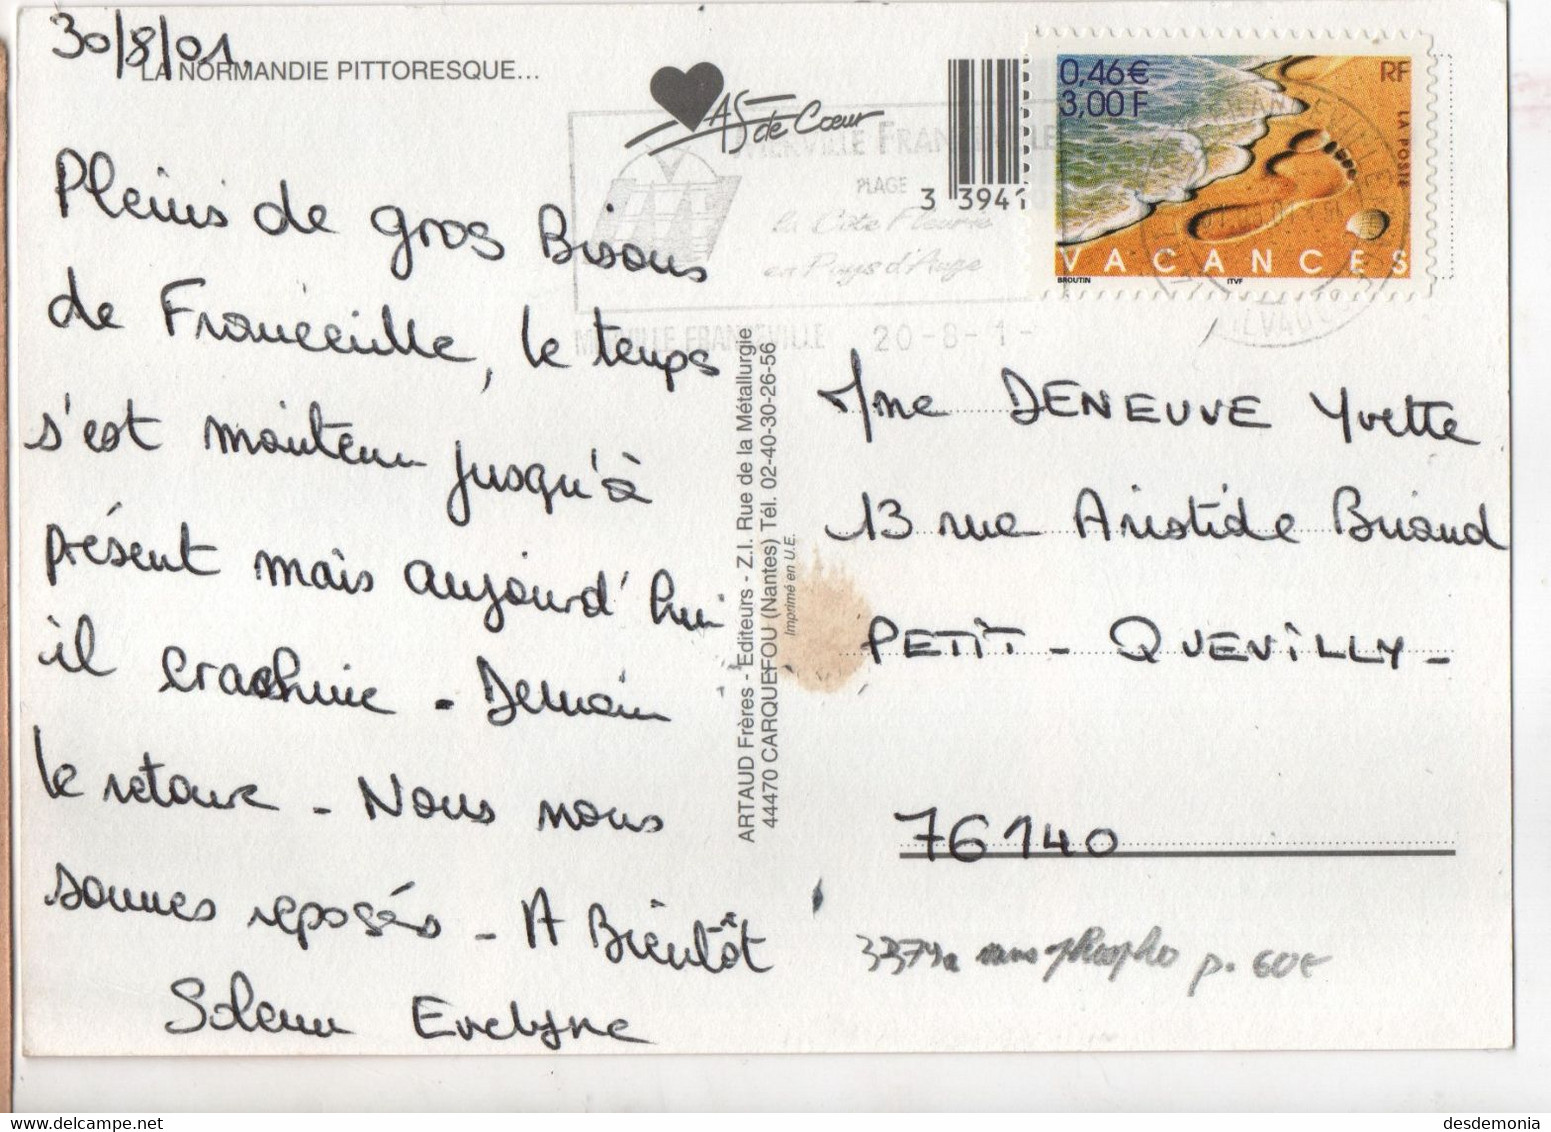 30/8/01.
LA NORMANDIE PITTORESQUE...
AS de Cœur
3 3941
0,46€
3,00 F
RF
LA POSTE
VACANCES
BROUTIN
ITVF
PLAGE
la Côte Fleurie
en Pays d'Auge
MERVILLE FRANCEVILLE
20-8-1-
Pleins de gros Bisous
de Franceville, le temps
s'est maintenu jusqu'à
présent mais aujourd'hui
il crachine - Demain
le retour - Nous nous
sommes reposés - A Bientôt
Solenn Evelyne
ARTAUD Frères - Editeurs - Z.I. Rue de la Métallurgie
44470 CARQUEFOU (Nantes) Tél. 02-40-30-26-56
Imprimé en U.E.
Mme DENEUVE Yvette
13 rue Aristide Briand
PETIT - QUEVILLY -
76140
3379a sans phospho p. 60€
desdemonia